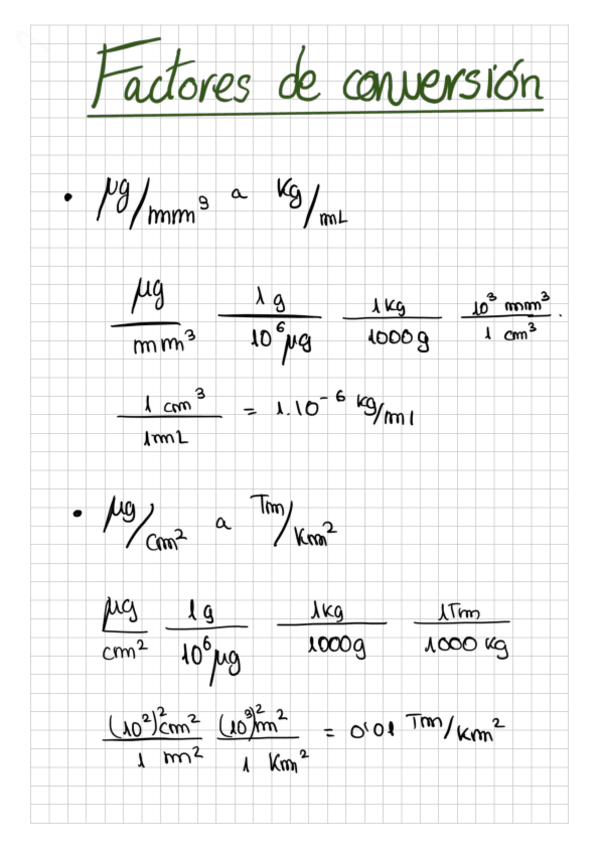 Factores de conversión
• µg/mm³ a Kg/mL
µg/mm³ 1g/10⁶µg 1Kg/1000g 10³ mm³/1 cm³ .
1 cm³/1mL = 1.10⁻⁶ Kg/ml
• µg/cm² a Tm/Km²
µg/cm² 1g/10⁶µg 1Kg/1000g 1Tm/1000 Kg
(10²)²cm²/1 m² (10³)²m²/1 Km² = 0'01 Tm/Km²